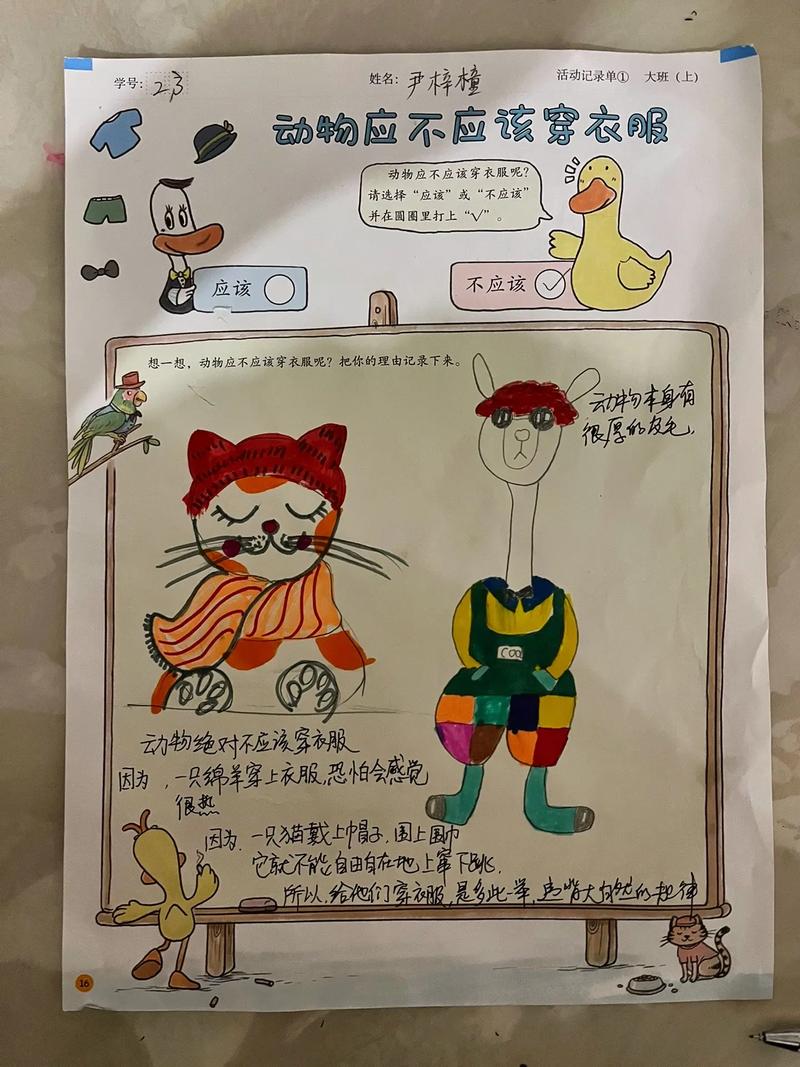 学号：23
姓名：尹梓橦
活动记录单① 大班（上）
动物应不应该穿衣服
动物应不应该穿衣服呢？
请选择“应该”或“不应该”
并在圆圈里打上“√”。
应该
不应该 ✓
想一想，动物应不应该穿衣服呢？把你的理由记录下来。
动物本身有
很厚的皮毛.
COOL
动物绝对不应该穿衣服
因为，一只绵羊穿上衣服,恐怕会感觉
很热
因为.一只猫戴上帽子.围上围巾
它就不能自由自在地上窜下跳.
所以.给他们穿衣服,是多此一举,违背大自然的规律
16